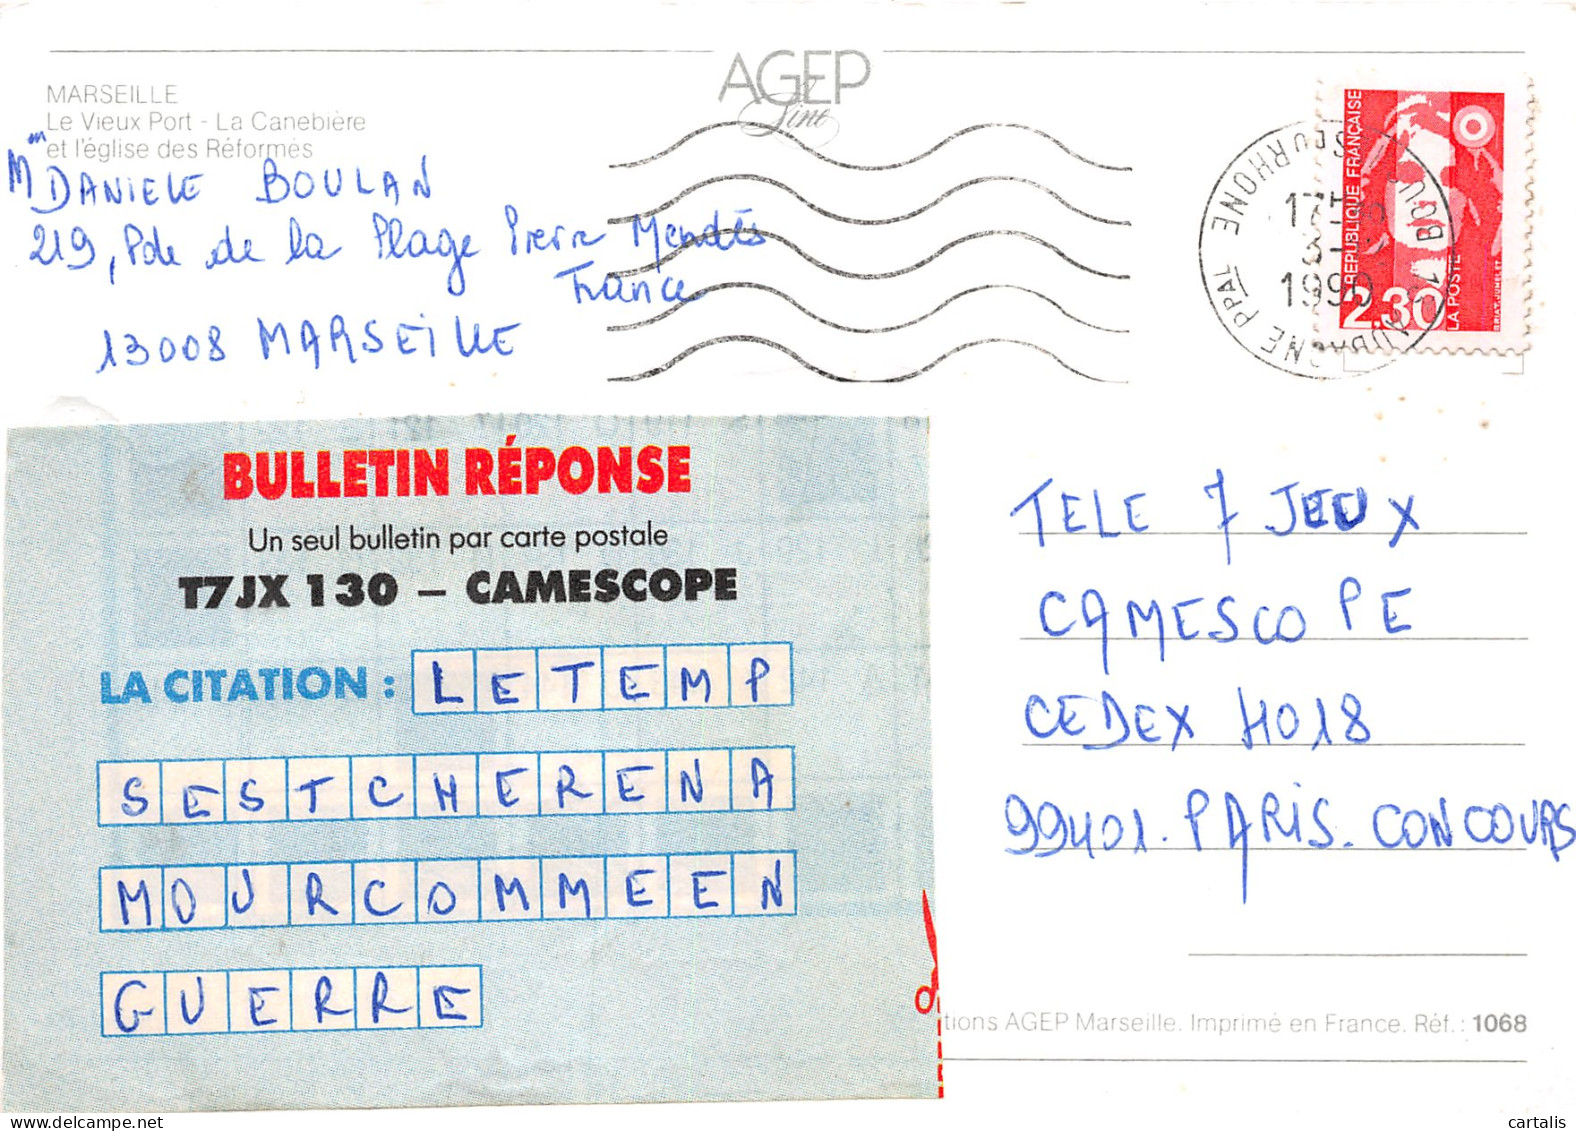 AGEP
Line
MARSEILLE
Le Vieux Port - La Canebière
et l'église des Réformés
Mme DANIELE BOULAN
219, Pde de la Plage Pierre Mendès
France
13008 MARSEILLE
REPUBLIQUE FRANÇAISE
2.30
LA POSTE
BRIAT-JUMELET
17
3-
1990
PPAL
BULLETIN RÉPONSE
Un seul bulletin par carte postale
T7JX 130 – CAMESCOPE
LA CITATION : LETEMP
SESTCHERENA
MOURCOMMEEN
GUERRE
TELE 7 JEUX
CAMESCOPE
CEDEX 4018
99401. PARIS. CONCOURS
tions AGEP Marseille. Imprimé en France. Réf. : 1068
cartalis